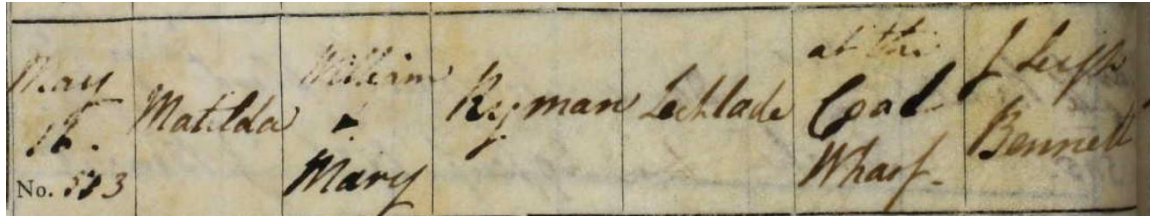 May
18.
No. 583
Matilda
William
&
Mary
Ryman
Lechlade
at the
Coal
Wharf.
J Leigh
Bennett